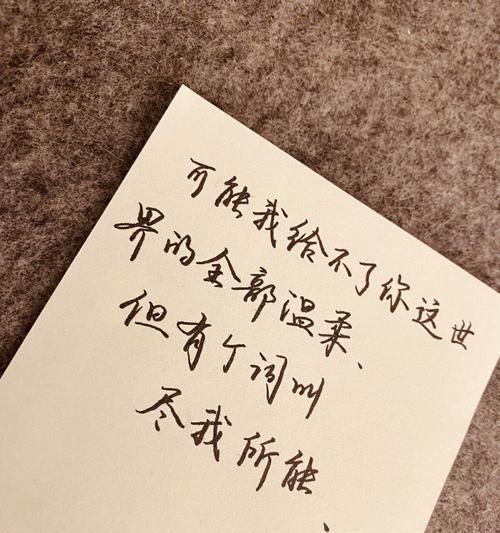 可能我给不了你这世
界的全部温柔、
但有个词叫
尽我所能、